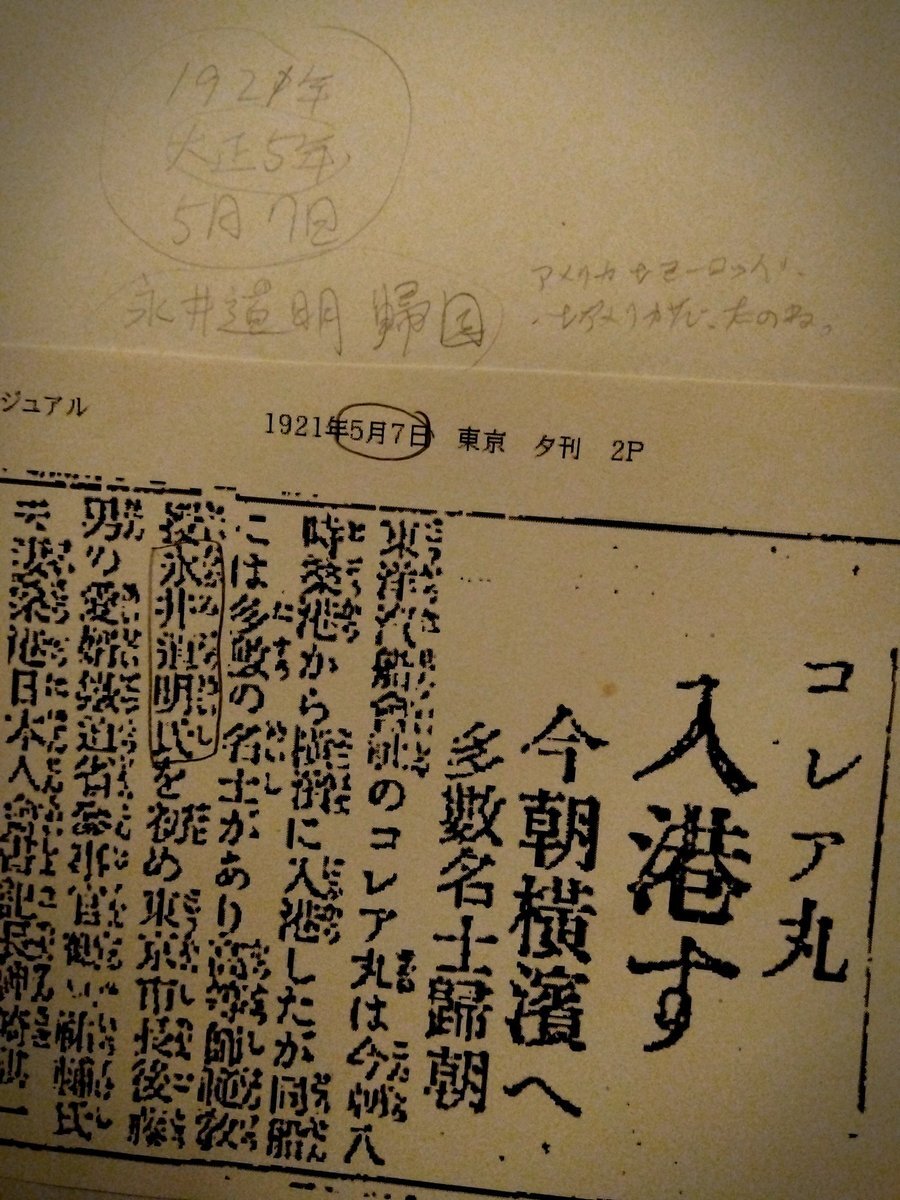 1921年
大正5年
5月7日
永井道明 帰国
アメリカ
ジュアル
1921年5月7日 東京 夕刊 2P
コレア丸
入港す
今朝横濱へ
多數名士歸朝
東洋汽船會社のコレア丸は今朝八
時桑港から横濱に入港したが同船
には多數の名士があり高等師範教
授永井道明氏を初め東京市長後藤
男の愛婿鐵道省參事官鶴見祐輔氏
夫妻桑港日本人會書記長神崎